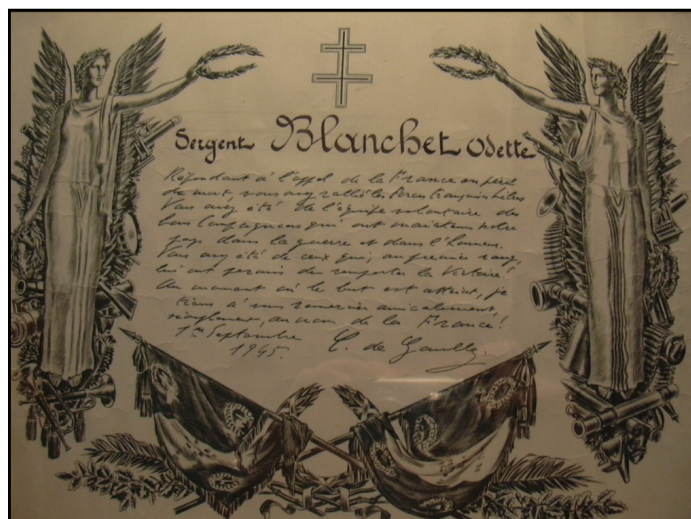 Sergent Blanchet Odette
Répondant à l'appel de la France en péril
de mort, vous avez rallié les Forces françaises Libres
Vous avez été de l'équipe volontaire des
bons Compagnons qui ont maintenu notre
pays dans la guerre et dans l'honneur.
Vous avez été de ceux qui, au premier rang,
lui ont permis de remporter la Victoire!
Au moment où le but est atteint, je
tiens à vous remercier amicalement,
simplement, au nom de la France!
1er Septembre
1945. C. de Gaulle.